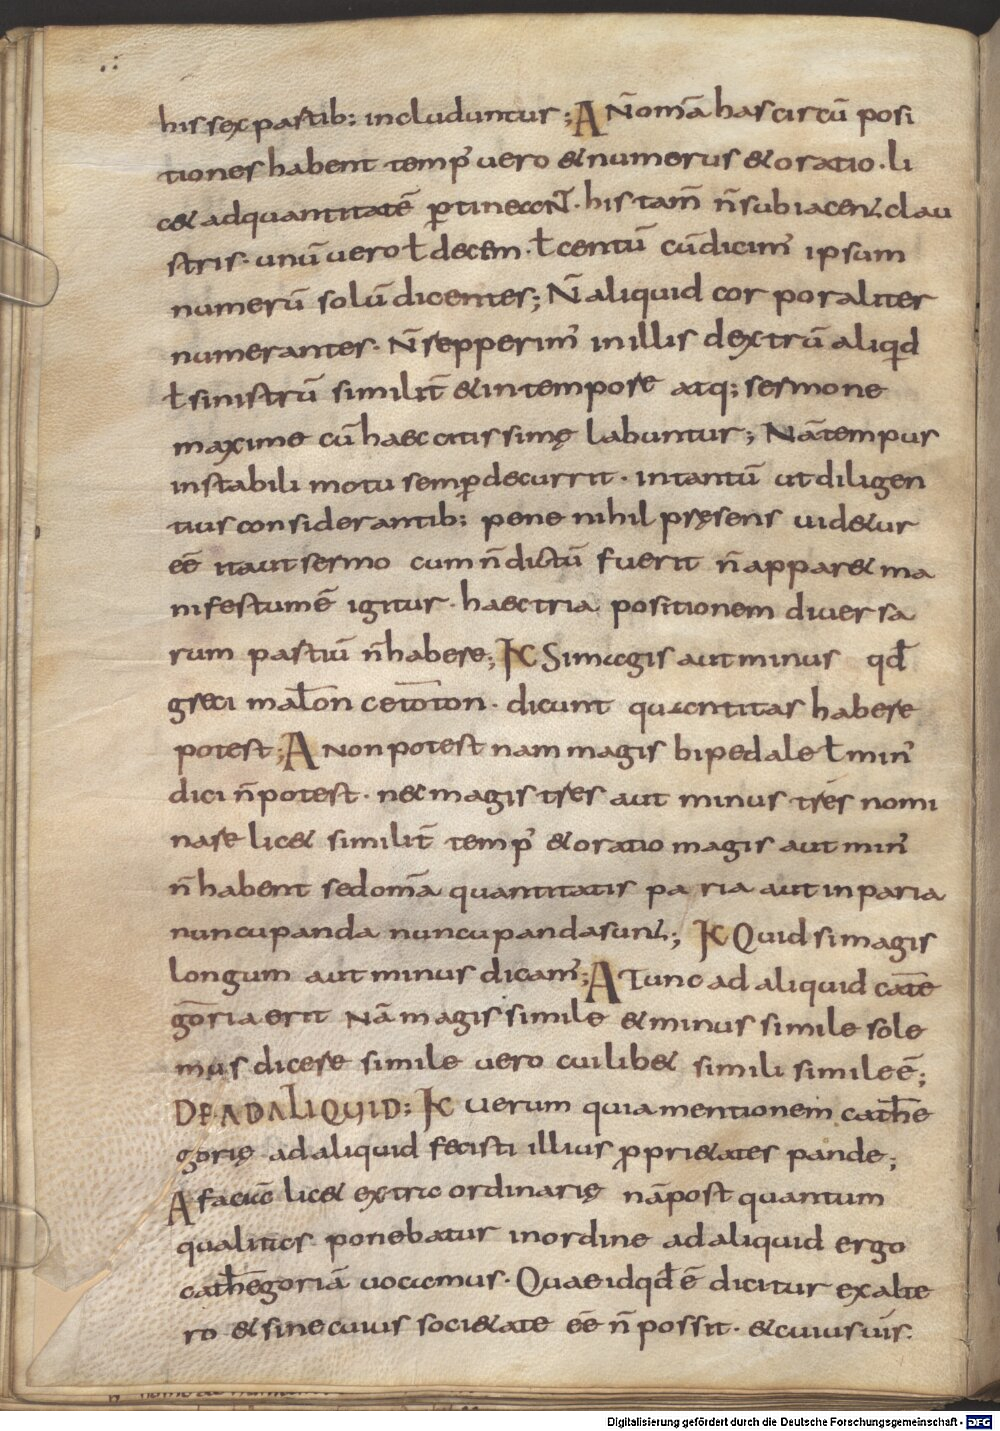 his sex partib; includuntur; A Nō oma has circū posi
tiones habent temp' uero & numerus & oratio · li
c& ad quantitatē ꝑtineant · his tam̄ n̄ subiacent clau
stris · unū uero ł decem · ł centū cū dicim' ipsum
numerū solū dicentes; N̄ aliquid corporaliter
numerantes · N̄ sepperim' in illis dextrū aliqid
ł sinistrū similit̄ & in tempore atq; sermone
maxime cū haec citissimę labuntur; Nā tempus
instabili motu semꝑ decurrit · in tantū ut diligen
tius considerantib; pene nihil pręsens uid&ur
eē ita ut sermo cum n̄ dictū fuerit n̄ appar& ma
nifestum ē igitur · haec tria positionem diuersa
rum partiū n̄ habere; K Si magis aut minus qd̄
greci mallon ce tōton · dicunt quantitas habere
potest; A Non potest nam magis bipedale ł min'
dici n̄ potest · nec magis tres aut minus tres nomi
nare lic& similit̄ temp' & oratio magis aut min'
n̄ habent sed oma quantitatis paria aut inparia
nuncupanda nuncupanda sunt; K Quid si magis
longum aut minus dicam'; A Tunc ad aliquid cate
goria erit Nā magis simile & minus simile sole
mus dicere simile uero cuilib& simili simile ē;
DE AD ALIQUID; K Uerum quia mentionem cathe
gorię ad aliquid fecisti illius ꝓpri&ates pande;
A faciā lic& extra ordinarię nā post quantum
qualitas ponebatur in ordine ad aliquid ergo
cathegoriā uocamus · Quae id qd̄ ē dicitur ex alte
ro & sine cuius soci&ate eē n̄ possit · & cuius uis
Digitalisierung gefördert durch die Deutsche Forschungsgemeinschaft - DFG